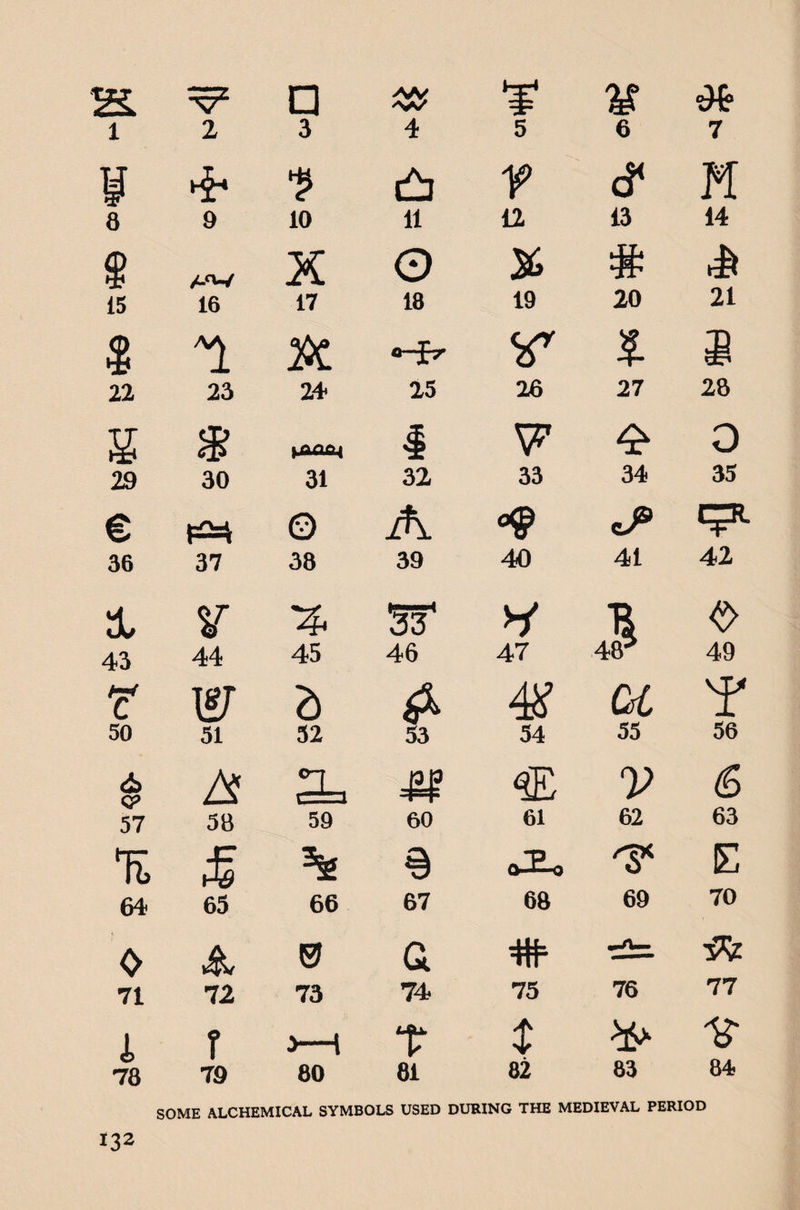 1 2 3 4 5 6 7
8 9 10 11 12 13 14
15 16 17 18 19 20 21
22 23 24 25 26 27 28
29 30 31 32 33 34 35
36 37 38 39 40 41 42
43 44 45 46 47 48 49
50 51 52 53 54 55 56
57 58 59 60 61 62 63
64 65 66 67 68 69 70
71 72 73 74 75 76 77
78 79 80 81 82 83 84
SOME ALCHEMICAL SYMBOLS USED DURING THE MEDIEVAL PERIOD
132